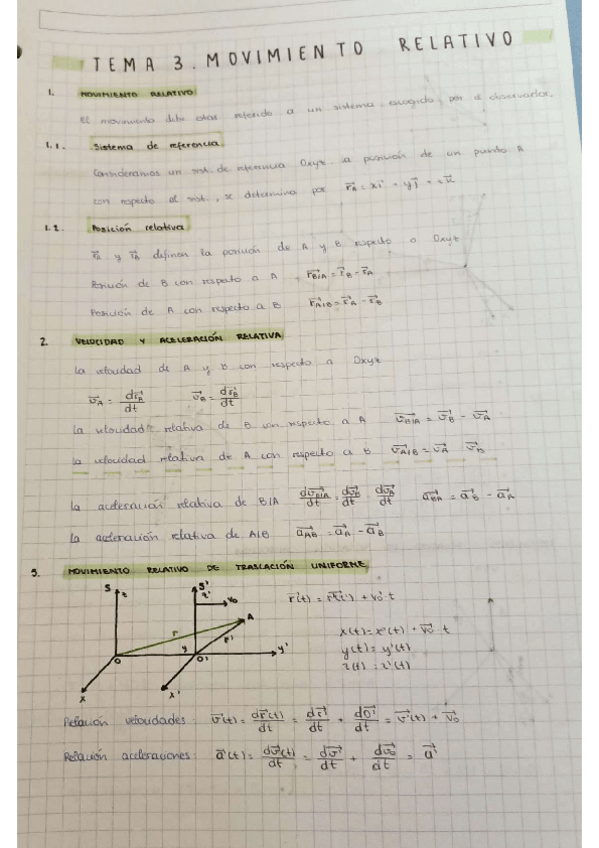 TEMA 3. MOVIMIENTO RELATIVO
1. MOVIMIENTO RELATIVO
El movimiento debe estar referido a un sistema escogido por el observador.
1.1. Sistema de referencia
Consideramos un sist. de referencia Oxyz. La posición de un punto A
con respecto al sist., se determina por r⃗_A = xi⃗ + yj⃗ + zk⃗
1.2. Posición relativa
r⃗_A y r⃗_B definen la posición de A y B respecto a Oxyz
Posición de B con respecto a A r⃗_B/A = r⃗_B - r⃗_A
Posición de A con respecto a B r⃗_A/B = r⃗_A - r⃗_B
2. VELOCIDAD Y ACELERACIÓN RELATIVA
La velocidad de A y B con respecto a Oxyz
v⃗_A = dr⃗_A/dt v⃗_B = dr⃗_B/dt
La velocidad relativa de B con respecto a A v⃗_B/A = v⃗_B - v⃗_A
La velocidad relativa de A con respecto a B v⃗_A/B = v⃗_A v⃗_B
La aceleración relativa de B/A dv⃗_B/A/dt = dv⃗_B/dt dv⃗_A/dt a⃗_BA = a⃗_B - a⃗_A
La aceleración relativa de A/B a⃗_AB = a⃗_A - a⃗_B
3. MOVIMIENTO RELATIVO DE TRASLACIÓN UNIFORME
S z S' z' v₀ r⃗(t) = r⃗'(t') + v⃗₀·t
A r r' x(t) = x'(t) + v⃗₀·t
O y O' y' y(t) = y'(t)
x x' z(t) = z'(t)
Relación velocidades: v⃗(t) = dr⃗(t)/dt = dr⃗'/dt + dO⃗'/dt = v⃗'(t) + v⃗₀
Relación aceleraciones: a⃗(t) = dv⃗(t)/dt = dv⃗'/dt + dv⃗₀/dt = a⃗'